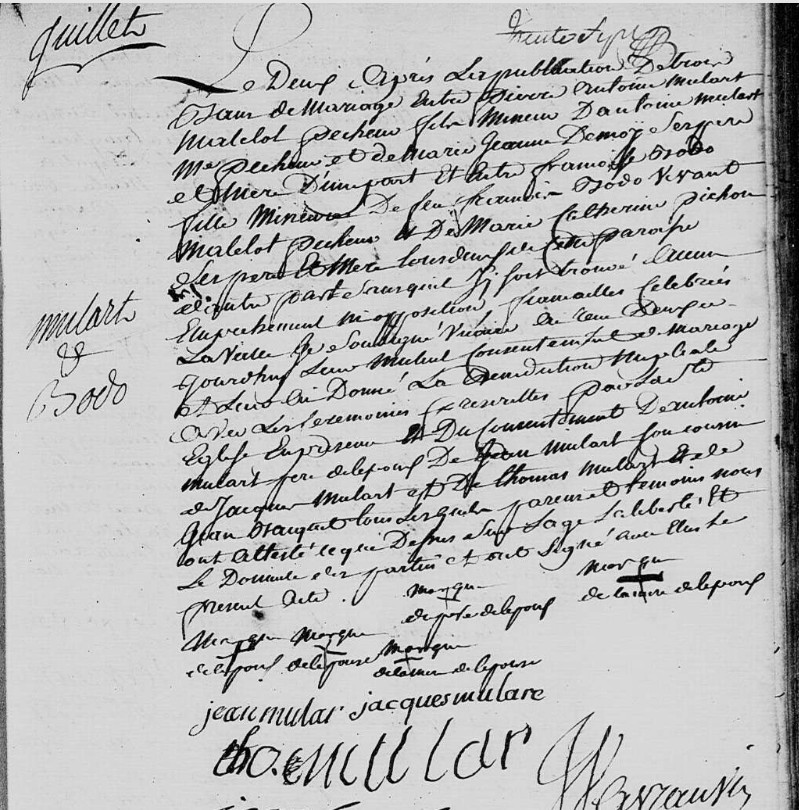 Juillet
trente sept
Le Deux Après Les publication De trois
Bans de Mariage Entre pierre antoine Mulart
Matelot pecheur fils Mineur D'antoine mulart
Me pecheur et de Marie Jeanne Demoy Ses pere
et Mere D'une part Et Entre françoise Bodo
fille Mineure De feu francois Bodo Vivant
Matelot pecheur et De Marie Catherine pichon
Ses pere et Mere tous deux de cette paroisse
d'autre part Sans quil sy soit trouvé Aucun
Empechement ni opposition fiancailles Celebrées
La Veille Je Soussigné Vicaire ai reçu
jourdhuy Leur Mutuel Consentement de Mariage
et Leur ai Donné La Benediction Nuptiale
Avec Les Ceremonies prescrites par La Ste
Eglise En presence Et Du Consentement De antoine
Mulart pere de lepoux De jean Mulart Son cousin
de Jacques Mulart et De thomas Mulart Et de
jean tous Lesquels parens et temoins nous
ont attesté ce que Dessus Sur Lage La liberté Et
Le Domicile des parties et ont Signé avec Nous Le
present Acte .
mulart
&
Bodo
Marque
du pere de lepoux
Marque
de la mere de lepoux
Marque
de lepoux
Marque
de lepouse
Marque
de la mere de lepouse
jean mular jacques mulare
tho. mullar